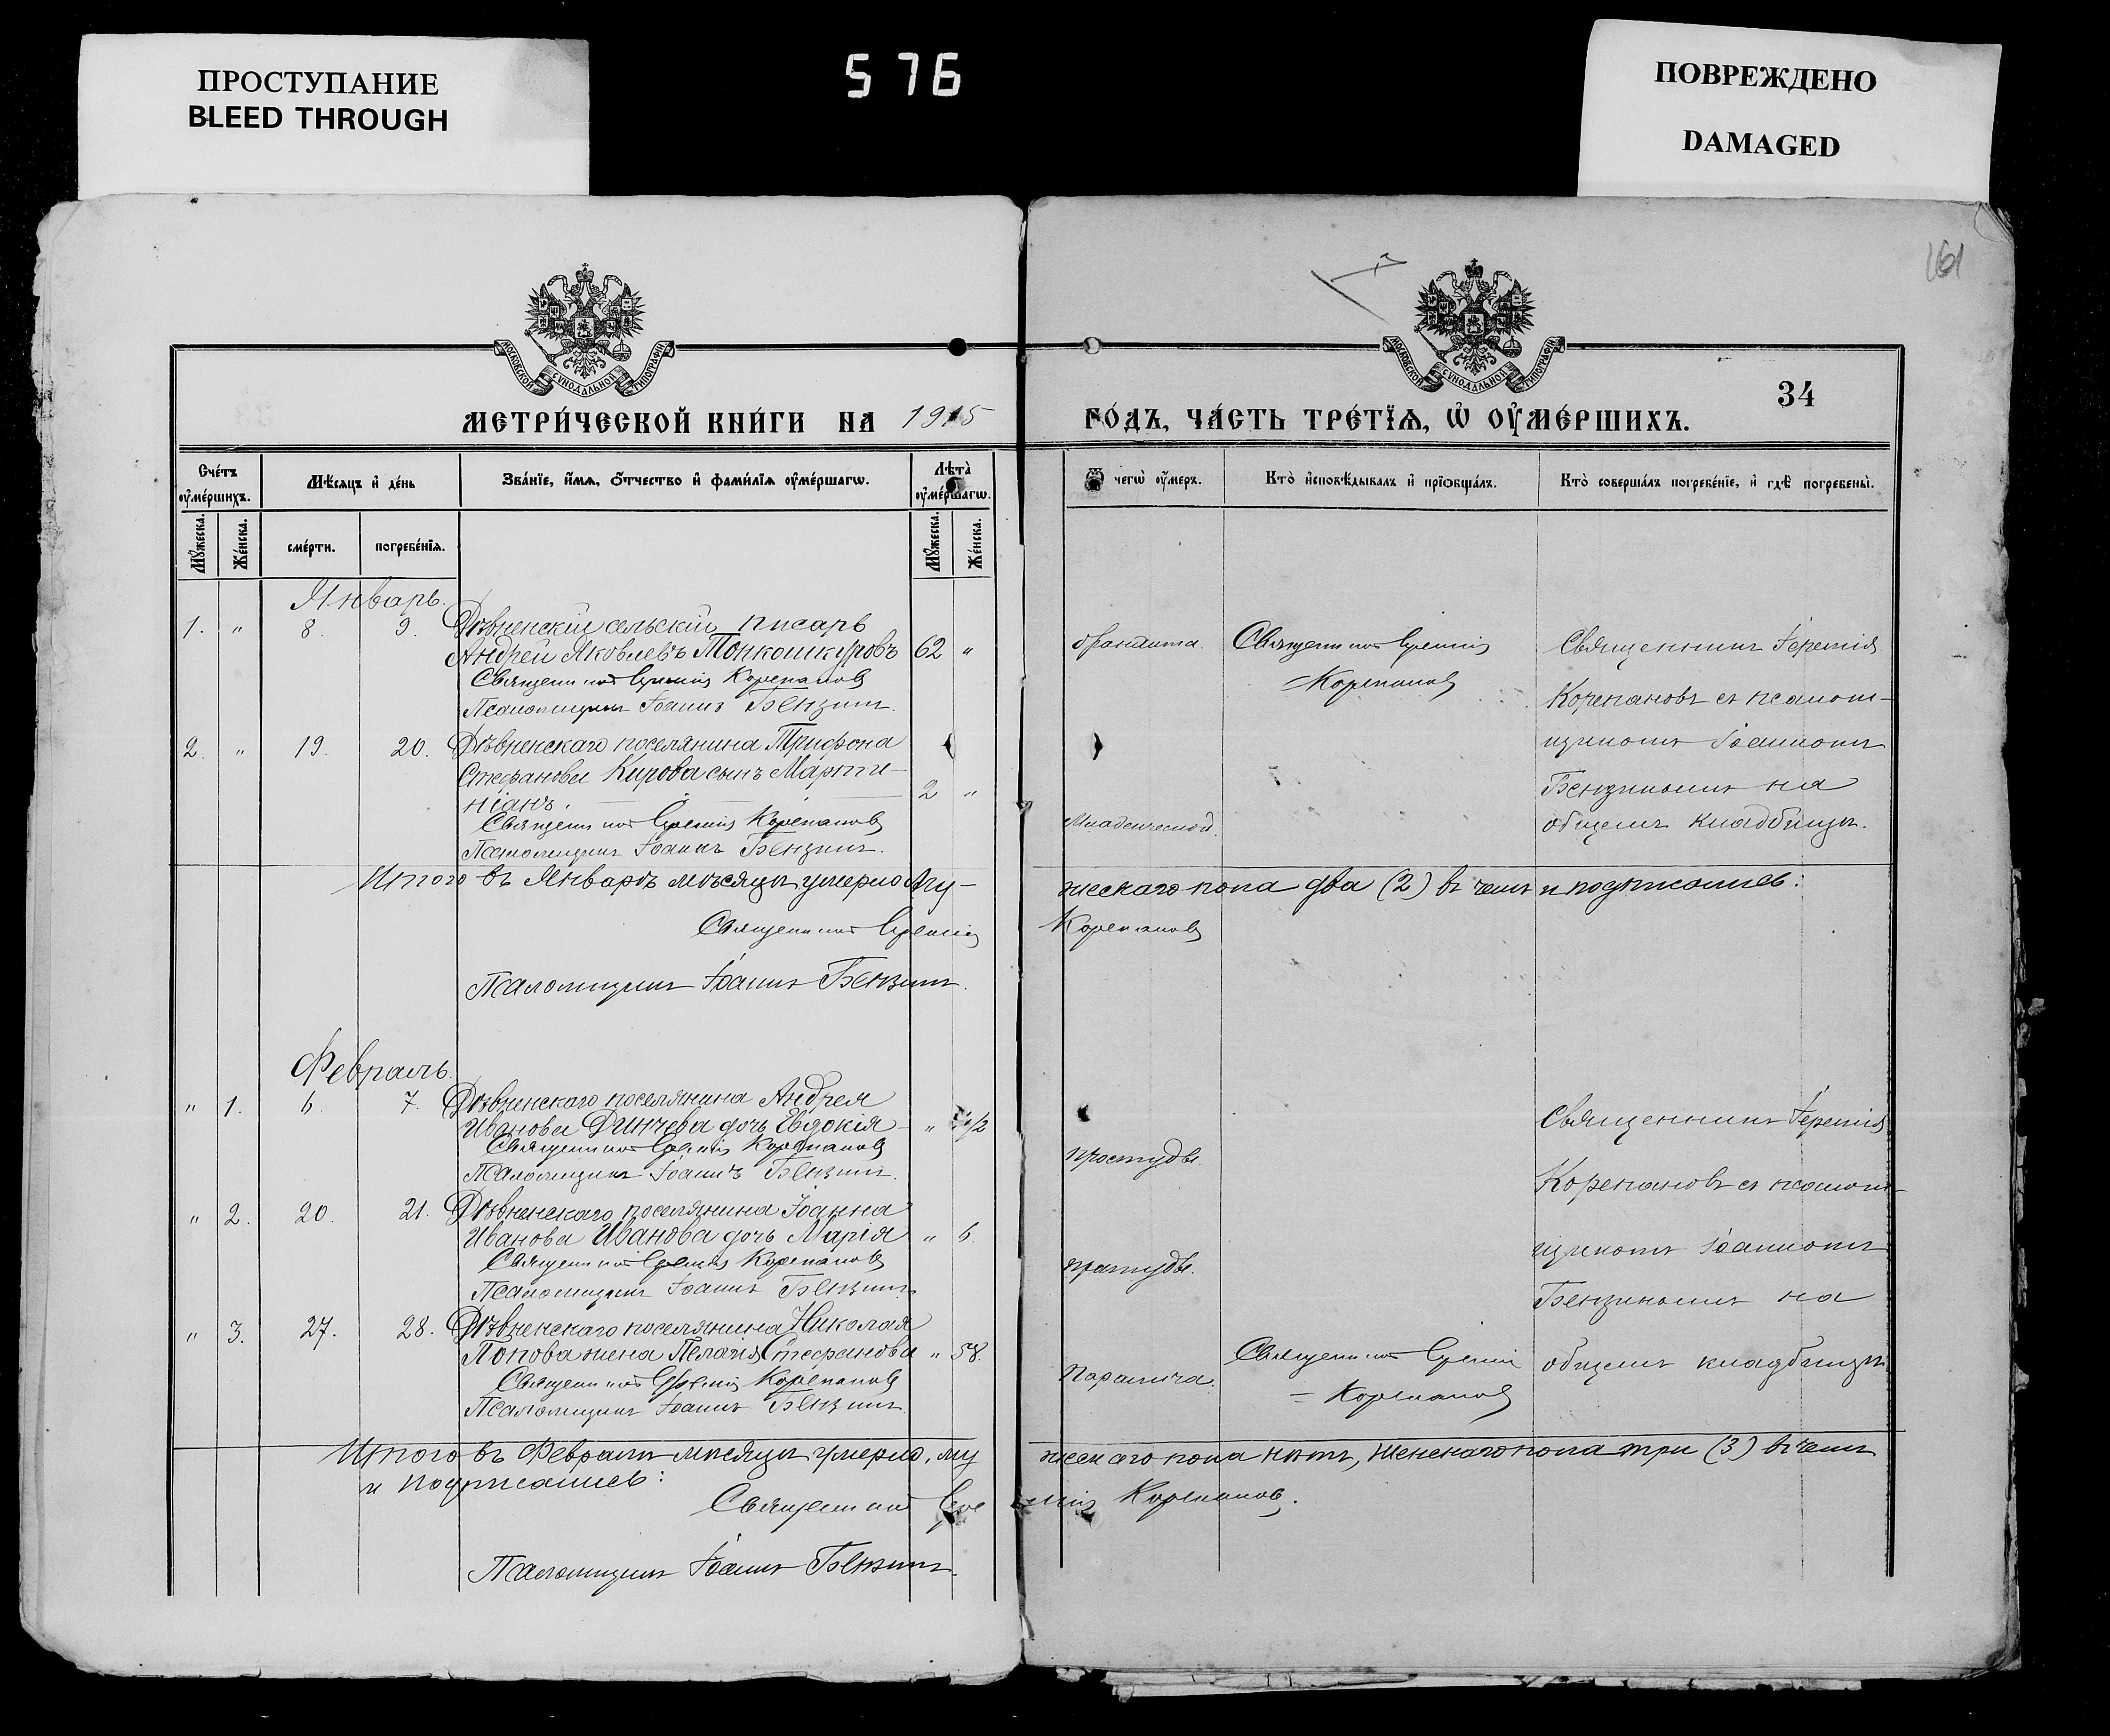 ПРОСТУПАНИЕ
BLEED THROUGH
576
ПОВРЕЖДЕНО
DAMAGED
161
МОСКОВСКОЙ СѴНОДАЛЬНОЙ ТИПОГРАФІИ
МОСКОВСКОЙ СѴНОДАЛЬНОЙ ТИПОГРАФІИ
34
МЕТРИ́ЧЕСКОЙ КНИ́ГИ НА 1915
ГО́ДЪ, ЧА́СТЬ ТРЕ́ТЇѦ, Ѡ҆ ОУ҆МЕ́РШИХЪ.
Сче́тъ оу҆ме́ршихъ.
Мѣ́сяцъ и҆ де́нь
Зва́нїе, и҆́мѧ, ѻ҆́тчество и҆ фами́лїѧ оу҆ме́ршагѡ.
Лѣта̀ оу҆ме́ршагѡ.
Ѿ чегѡ̀ оу҆́меръ.
Кто̀ и҆сповѣ́дывалъ и҆ прїѡбща́лъ.
Кто̀ соверша́лъ погребе́нїе, и҆ гдѣ̀ погребены̀.
Мꙋ́жеска.
Же́нска.
сме́рти.
погребе́нїѧ.
Мꙋ́жеска.
Же́нска.
Январь.
1. " 8. 9. Дѣвненскій сельскій писарь
Андрей Яковлевъ Тонкошкуровъ 62 "
Священникъ Іеремія Корепановъ
Псаломщикъ Іоаннъ Бензинъ.
Священникъ Іеремія
Корепановъ
Священникъ Іеремія
Корепановъ съ псалом-
щикомъ Іоанномъ
Бензинымъ на
общемъ кладбищѣ.
2. " 19. 20. Дѣвненскаго поселянина Трифона
Стефанова Кирова сынъ Марти-
ніанъ. 2 "
Священникъ Іеремія Корепановъ
Псаломщикъ Іоаннъ Бензинъ.
Младенческой.
Итого въ Январѣ мѣсяцѣ умерло му-
жескаго пола два (2) въ чемъ и подписались:
Священникъ Іеремія
Корепановъ
Псаломщикъ Іоаннъ Бензинъ.
Февраль.
" 1. 6. 7. Дѣвненскаго поселянина Андрея
Иванова Динчева дочь Евдокія " 1/2
Священникъ Іеремія Корепановъ
Псаломщикъ Іоаннъ Бензинъ.
простуды.
Священникъ Іеремія
Корепановъ съ псалом-
щикомъ Іоанномъ
Бензинымъ на
общемъ кладбищѣ.
" 2. 20. 21. Дѣвненскаго поселянина Іоанна
Иванова Иванова дочь Марія " 6.
Священникъ Іеремія Корепановъ
Псаломщикъ Іоаннъ Бензинъ.
простуды.
" 3. 27. 28. Дѣвненскаго поселянина Николая
Попова жена Пелагія Стефанова " 58.
Священникъ Іеремія Корепановъ
Псаломщикъ Іоаннъ Бензинъ.
Паралича.
Священникъ Іеремія
= Корепановъ
Итого въ Февралѣ мѣсяцѣ умерло, му
жескаго пола нѣтъ, женскаго пола три (3) въ чемъ
и подписались:
Священникъ Іере
мія Корепановъ.
Псаломщикъ Іоаннъ Бензинъ.